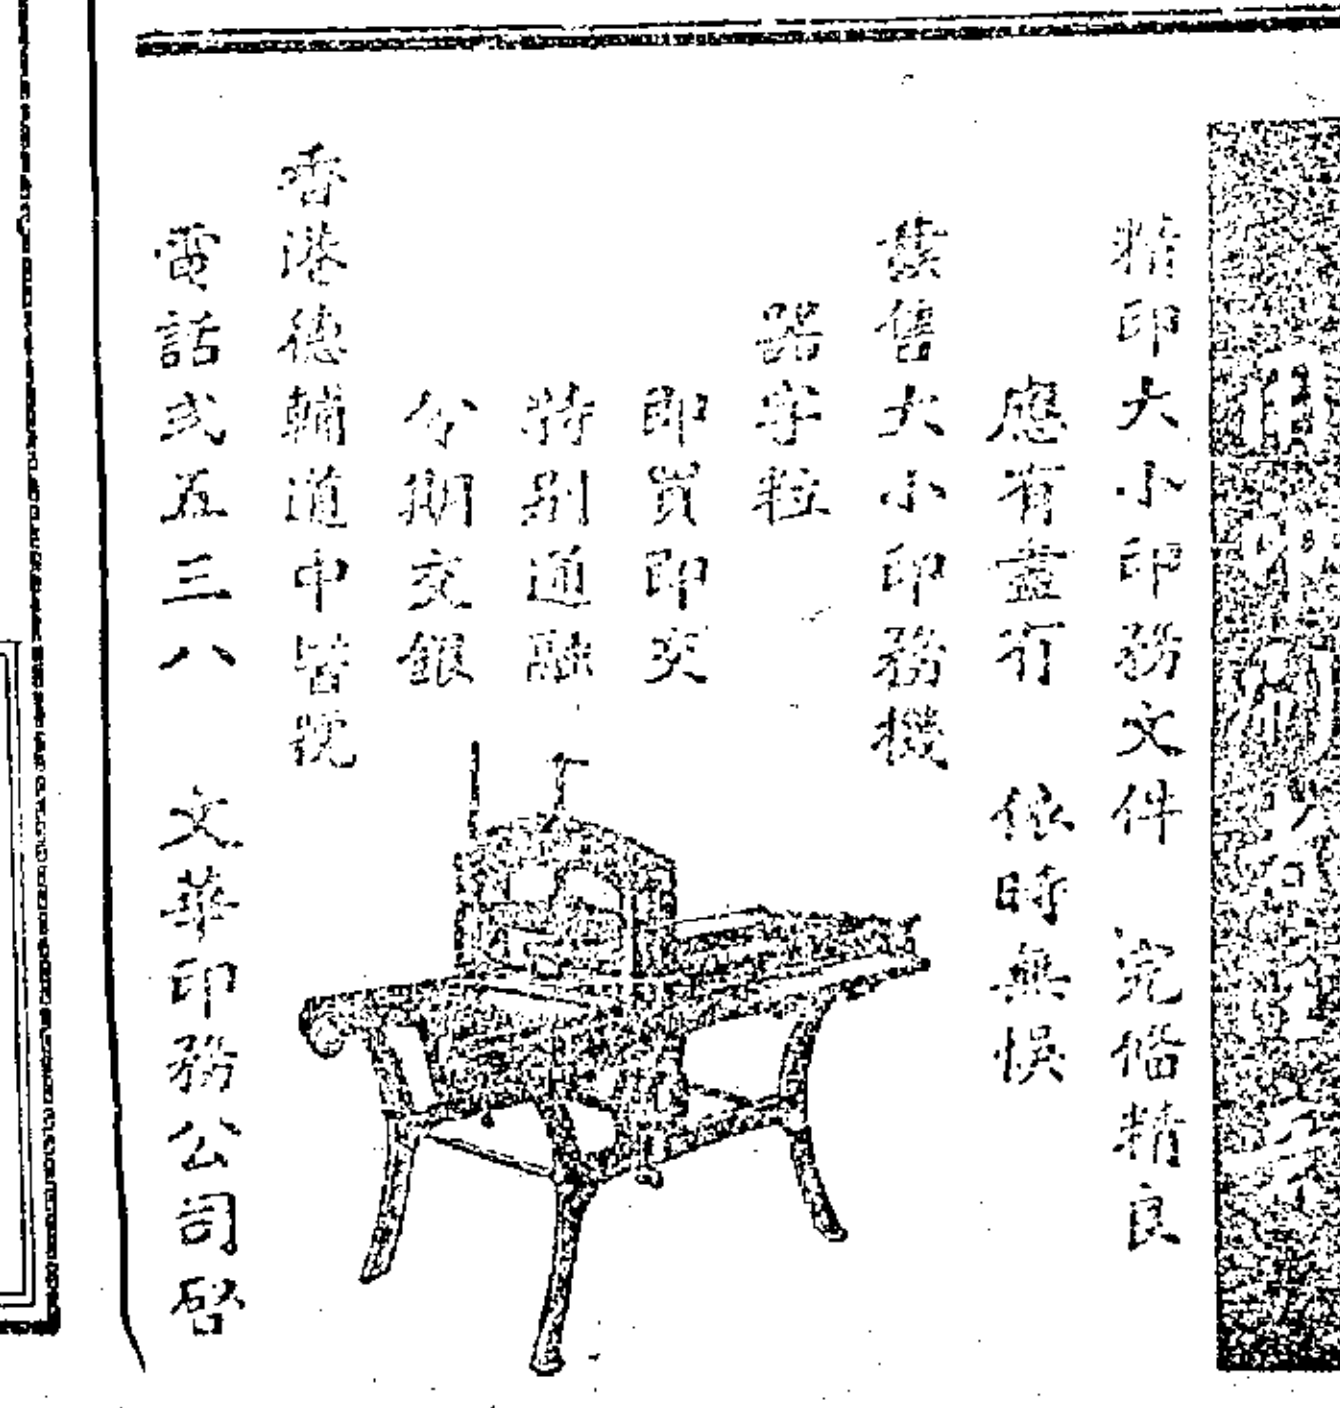 精印大小印務文件　完備精良
應有盡有　依時無悞
發售大小印務機
器字粒
即買即交
特别通融
分期交銀
香港德輔道中皆號
電話弍五三八　文華印務公司啓